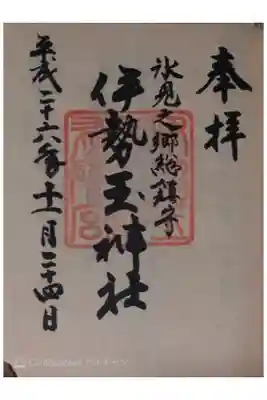 奉拝
氷見之郷総鎮守
伊勢玉神社
平成二十六年十一月二十四日